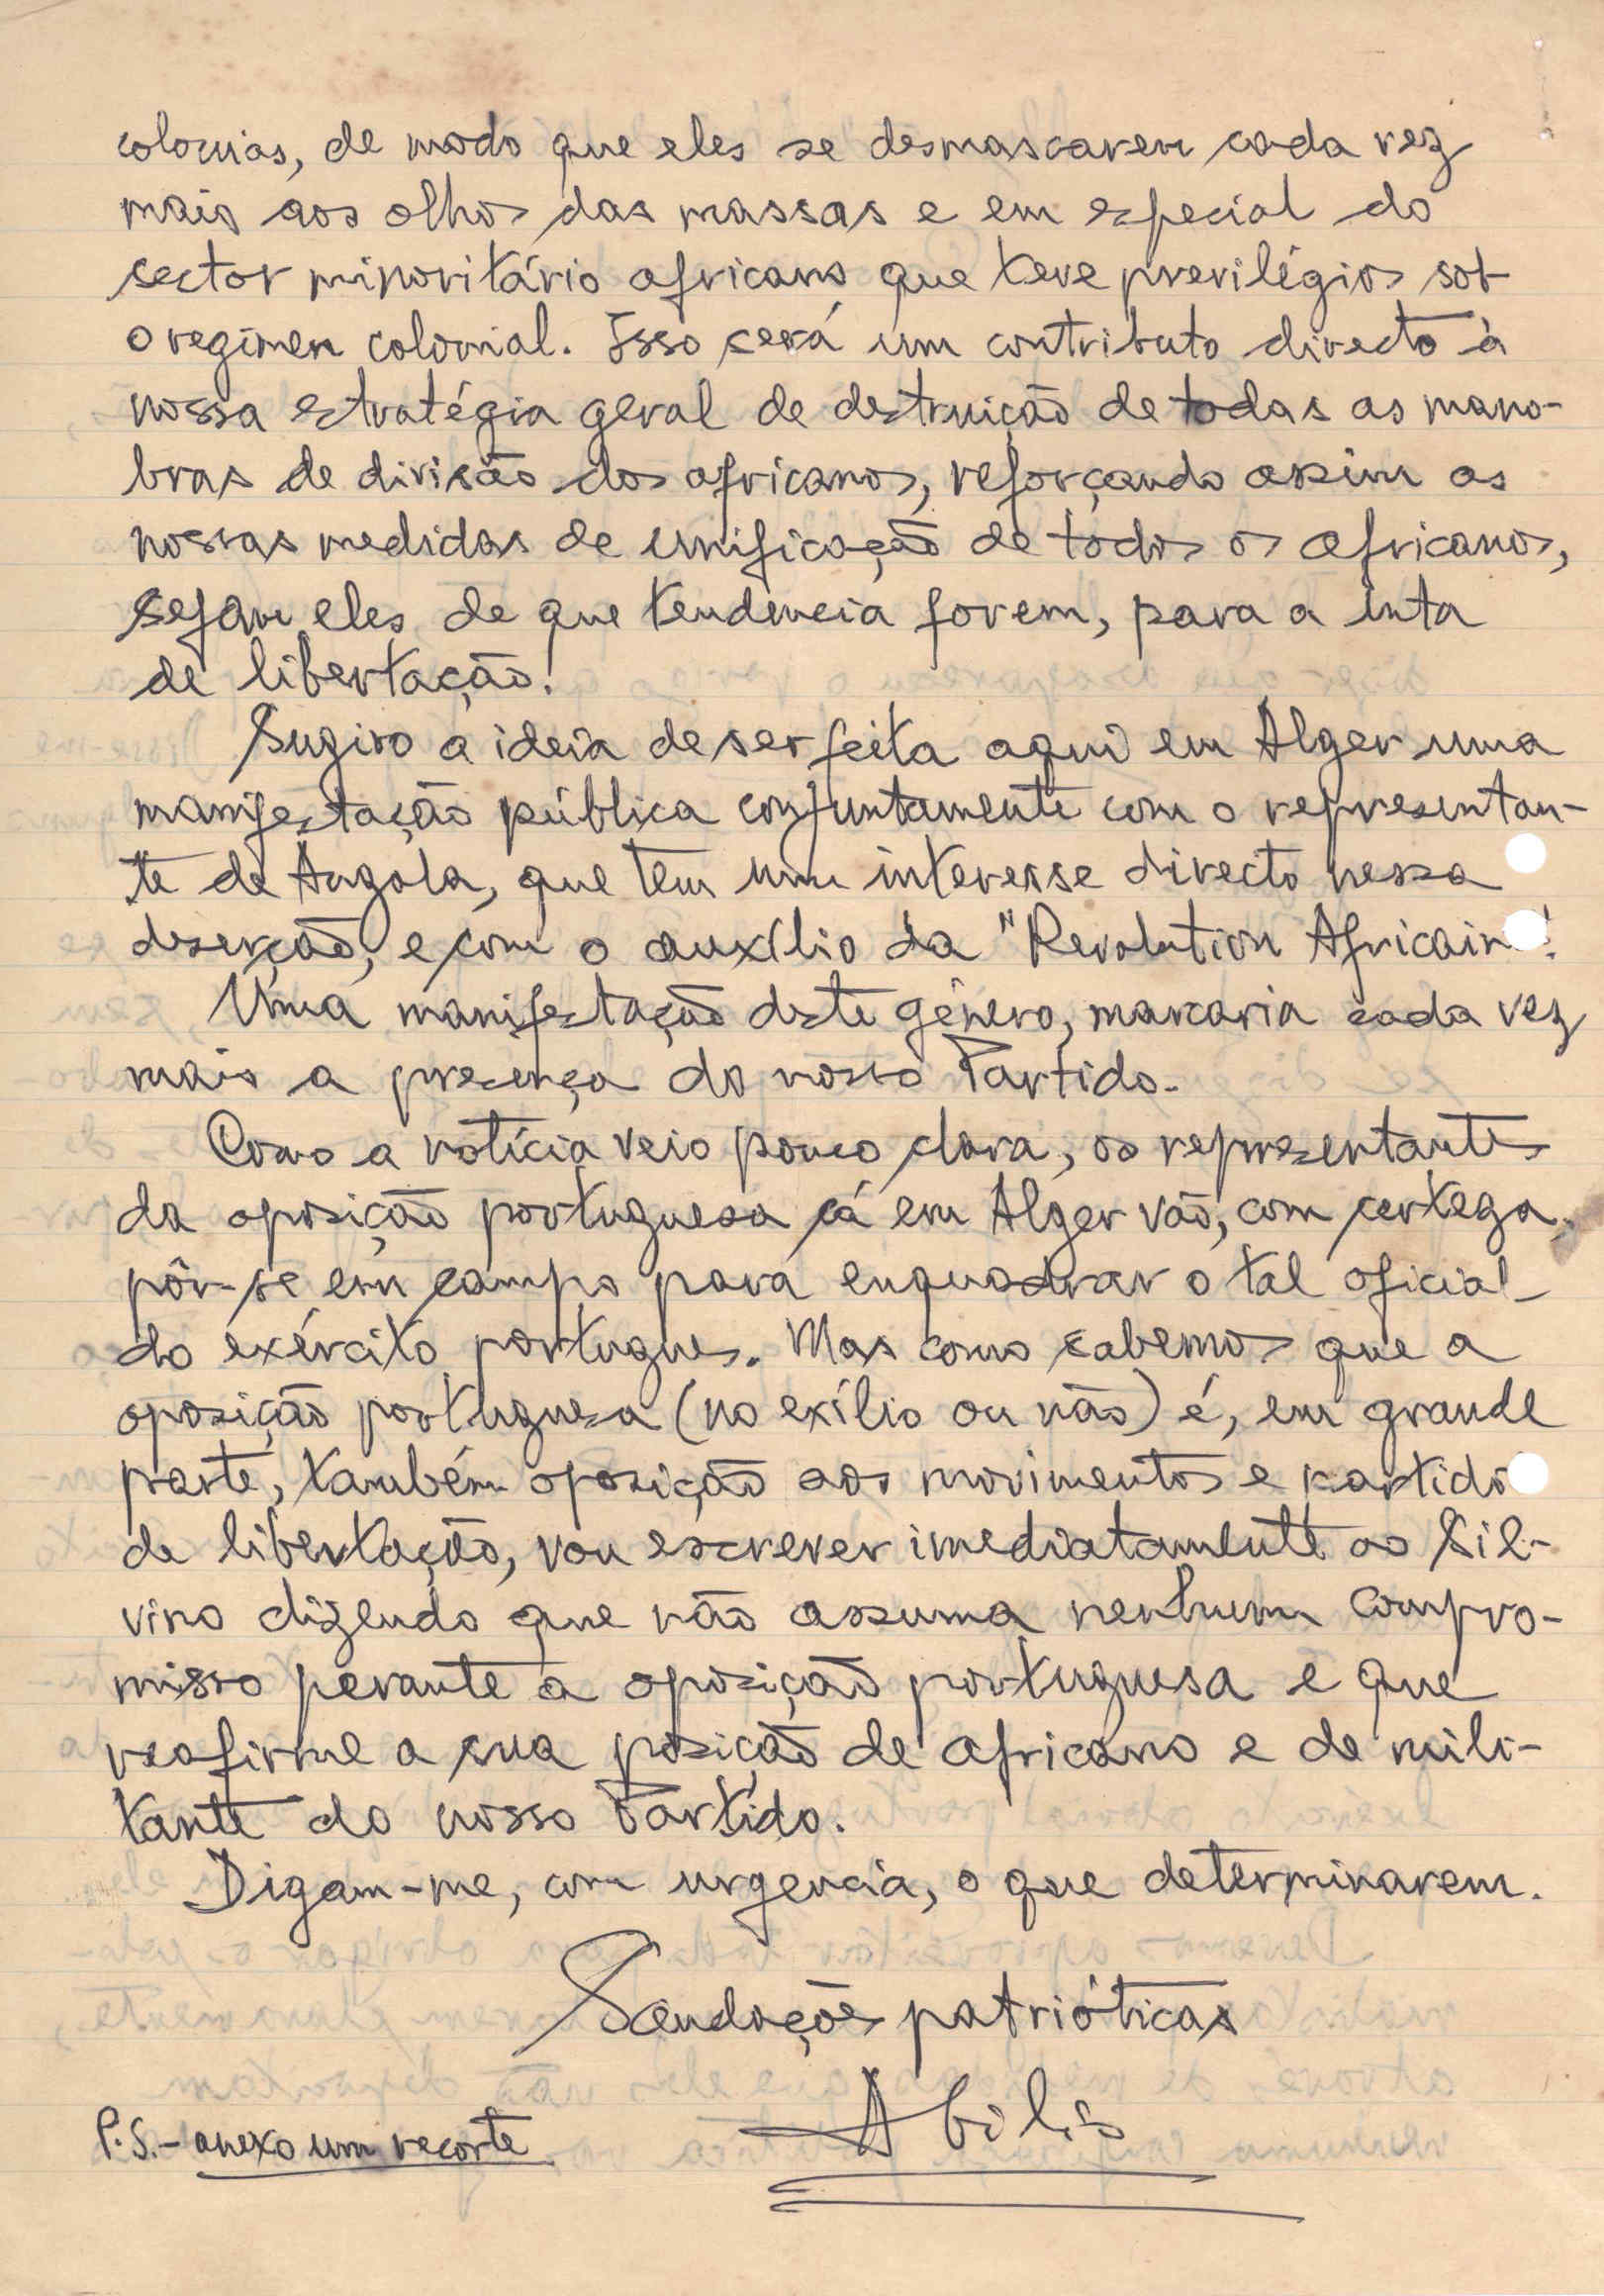 colonias, de modo que eles se desmascarem cada vez
mais aos olhos das massas e em especial do
sector minoritário africano que teve previlégios sob
o regimen colonial. Isso será um contributo directo à
nossa estratégia geral de destruição de todas as mano-
bras de divisão dos africanos, reforçando assim as
nossas medidas de unificação de todos os africanos,
sejam eles de que tendencia forem, para a luta
de libertação!
Sugiro a ideia de ser feita aqui em Alger uma
manifestação pública conjuntamente com o representan-
te de Angola, que tem um interesse directo nessa
deserção, e com o auxílio da "Revolution Africaine".
Uma manifestação deste género, marcaria cada vez
mais a presença do nosso Partido.
Como a notícia veio pouco clara, os representantes
da oposição portuguesa cá em Alger vão, com certeza,
pôr-se em campo para enquadrar o tal oficial
do exército portugues. Mas como sabemos que a
oposição portuguesa (no exílio ou não) é, em grande
parte, também oposição aos movimentos e partidos
de libertação, vou escrever imediatamente ao Sil-
vino dizendo que não assuma nenhum compro-
misso perante a oposição portuguesa e que
reafirme a sua posição de africano e de mili-
tante do nosso Partido.
Digam-me, com urgencia, o que determinarem.
Saudações patrióticas
Abílio
P.S.- anexo um recorte